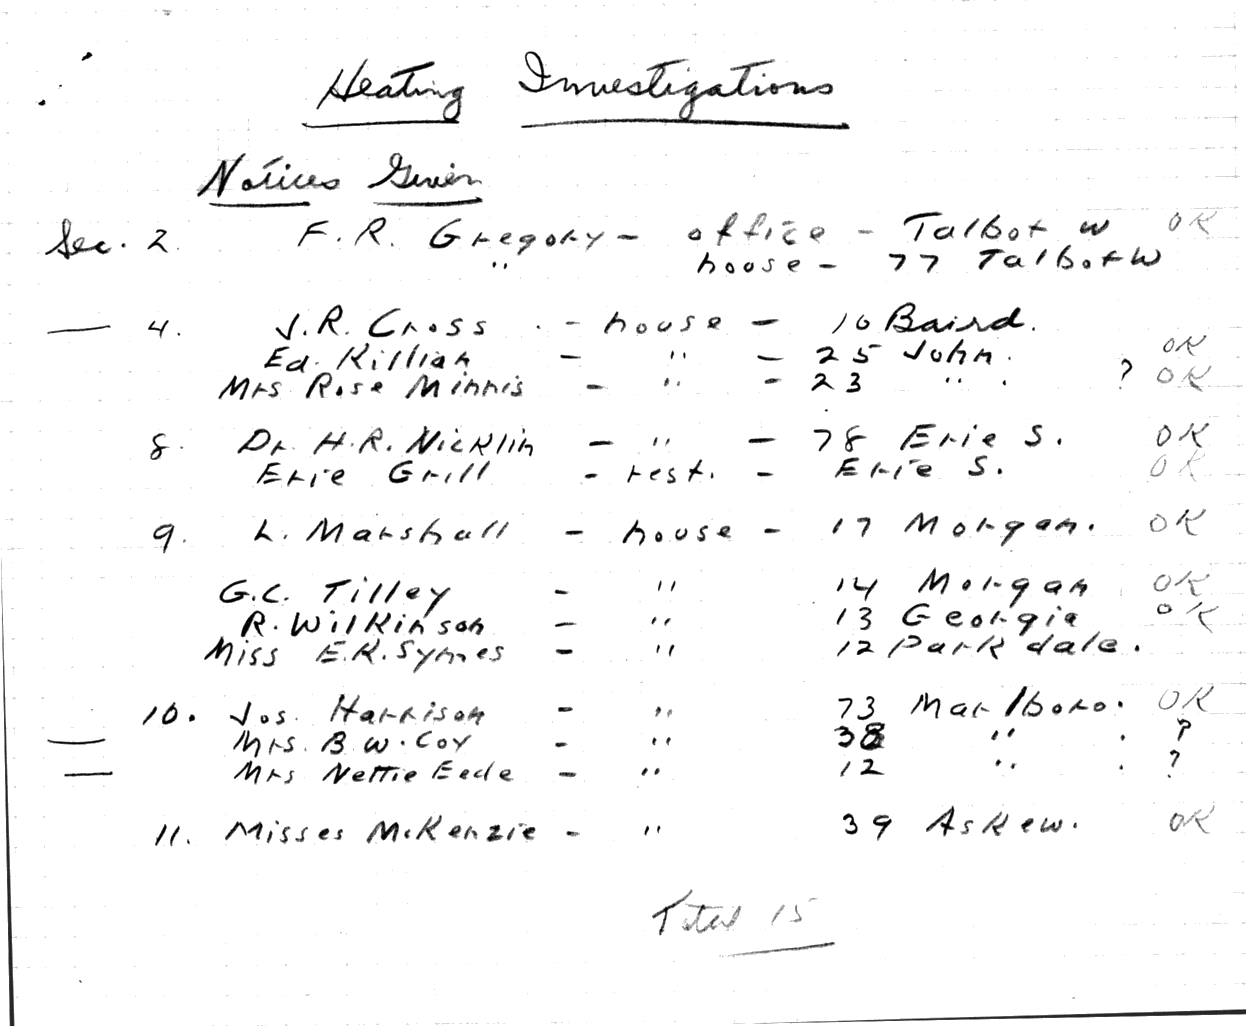 Heating Investigations
Notices Given
Sec. 2. F. R. Gregory - office - Talbot W OK
" house - 77 Talbot W
— 4. J. R. Cross - house - 10 Baird.
Ed. Killian - " - 25 John. OK
Mrs Rose Minnis - " - 23 " . ? OK
8. Dr. H. R. Nicklin - " - 78 Erie S. OK
Erie Grill - rest. - Erie S. OK
9. L. Marshall - house - 17 Morgan. OK
G. C. Tilley - " 14 Morgan OK
R. Wilkinson - " 13 Georgia OK
Miss E. K. Symes - " 12 Parkdale.
10. Jos. Harrison - " 73 Marlboro. OK
— Mrs. B. W. Coy - " 38 " . ?
— Mrs Nettie Eede - " 12 " . ?
11. Misses McKenzie - " 39 Askew. OK
Total 15